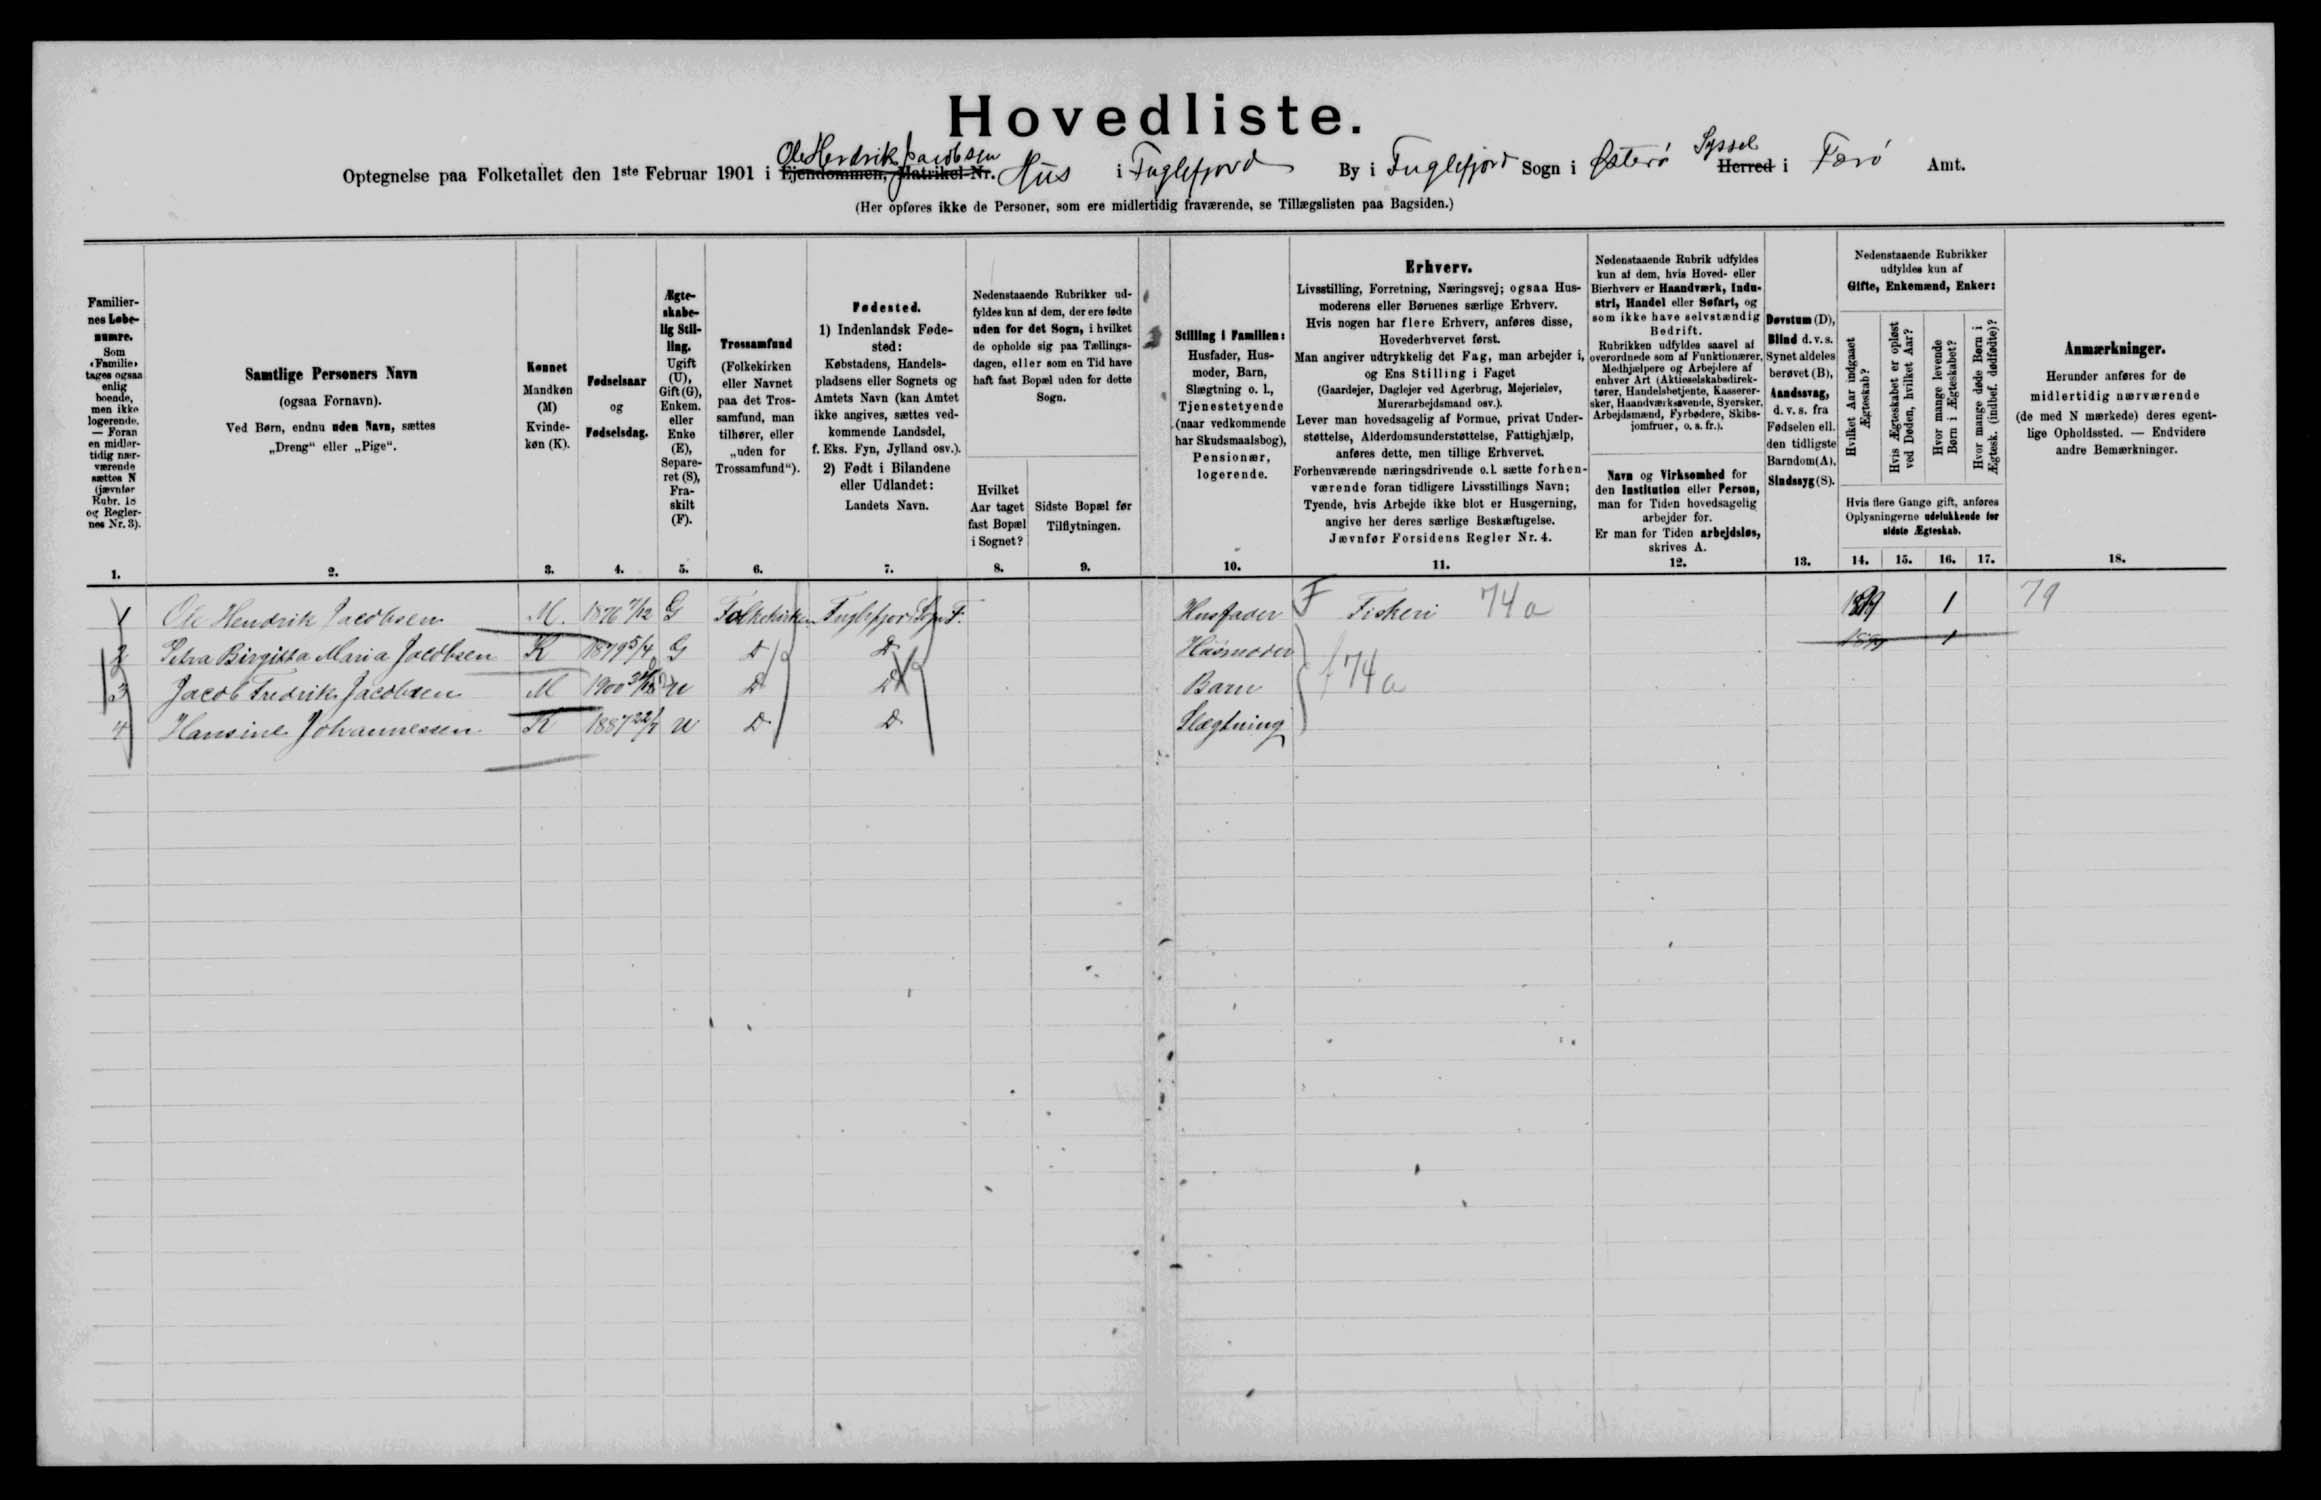 Hovedliste.
Ole Hendrik Jacobsen
Optegnelse paa Folketallet den 1ste Februar 1901 i Ejendommen, Matrikel-Nr. Hus i Fuglefjord By i Fuglefjord Sogn i Østerø Syssel Herred i Færø Amt.
(Her opføres ikke de Personer, som ere midlertidig fraværende, se Tillægslisten paa Bagsiden.)
Familier-
nes Løbe-
numre.
Som
«Familie»
tages ogsaa
enlig
boende,
men ikke
logerende.
— Foran
en midler-
tidig nær-
værende
sættes N
(jævnfør
Rubr. 18
og Regler-
nes Nr. 3).
1.
Samtlige Personers Navn
(ogsaa Fornavn).
Ved Børn, endnu uden Navn, sættes
„Dreng“ eller „Pige“.
2.
Kønnet
Mandkøn
(M)
Kvinde-
køn (K).
3.
Fødselsaar
og
Fødselsdag.
4.
Ægte-
skabe-
lig Stil-
ling.
Ugift
(U),
Gift (G),
Enkem.
eller
Enke
(E),
Separe-
ret (S),
Fra-
skilt
(F).
5.
Trossamfund
(Folkekirken
eller Navnet
paa det Tros-
samfund, man
tilhører, eller
„uden for
Trossamfund“).
6.
Fødested.
1) Indenlandsk Føde-
sted:
Købstadens, Handels-
pladsens eller Sognets og
Amtets Navn (kan Amtet
ikke angives, sættes ved-
kommende Landsdel,
f. Eks. Fyn, Jylland osv.).
2) Født i Bilandene
eller Udlandet:
Landets Navn.
7.
Nedenstaaende Rubrikker ud-
fyldes kun af dem, der ere fødte
uden for det Sogn, i hvilket
de opholde sig paa Tællings-
dagen, eller som en Tid have
haft fast Bopæl uden for dette
Sogn.
Hvilket
Aar taget
fast Bopæl
i Sognet?
8.
Sidste Bopæl før
Tilflytningen.
9.
Stilling i Familien:
Husfader, Hus-
moder, Barn,
Slægtning o. l.,
Tjenestetyende
(naar vedkommende
har Skudsmaalsbog),
Pensionær,
logerende.
10.
Erhverv.
Livsstilling, Forretning, Næringsvej; ogsaa Hus-
moderens eller Børnenes særlige Erhverv.
Hvis nogen har flere Erhverv, anføres disse,
Hovederhvervet først.
Man angiver udtrykkelig det Fag, man arbejder i,
og Ens Stilling i Faget
(Gaardejer, Daglejer ved Agerbrug, Mejerielev,
Murerarbejdsmand osv.).
Lever man hovedsagelig af Formue, privat Under-
støttelse, Alderdomsunderstøttelse, Fattighjælp,
anføres dette, men tillige Erhvervet.
Forhenværende næringsdrivende o. l. sætte forhen-
værende foran tidligere Livsstillings Navn;
Tyende, hvis Arbejde ikke blot er Husgerning,
angive her deres særlige Beskæftigelse.
Jævnfør Forsidens Regler Nr. 4.
11.
Nedenstaaende Rubrik udfyldes
kun af dem, hvis Hoved- eller
Bierhverv er Haandværk, Indu-
stri, Handel eller Søfart, og
som ikke have selvstændig
Bedrift.
Rubrikken udfyldes saavel af
overordnede som af Funktionærer,
Medhjælpere og Arbejdere af
enhver Art (Aktieselskabsdirek-
tører, Handelsbetjente, Kasserer-
sker, Haandværkssvende, Syersker,
Arbejdsmænd, Fyrbødere, Skibs-
jomfruer, o. s. fr.).
Navn og Virksomhed for
den Institution eller Person,
man for Tiden hovedsagelig
arbejder for.
Er man for Tiden arbejdsløs,
skrives A.
12.
Døvstum (D),
Blind d. v. s.
Synet aldeles
berøvet (B),
Aandssvag,
d. v. s. fra
Fødselen ell.
den tidligste
Barndom (A),
Sindssyg (S).
13.
Nedenstaaende Rubrikker
udfyldes kun af
Gifte, Enkemænd, Enker:
Hvilket Aar indgaaet
Ægteskab?
Hvis Ægteskabet er opløst
ved Døden, hvilket Aar?
Hvor mange levende
Børn i Ægteskabet?
Hvor mange døde Børn i
Ægtesk. (indbef. dødfødte)?
Hvis flere Gange gift, anføres
Oplysningerne udelukkende for
sidste Ægteskab.
14. 15. 16. 17.
Anmærkninger.
Herunder anføres for de
midlertidig nærværende
(de med N mærkede) deres egent-
lige Opholdssted. — Endvidere
andre Bemærkninger.
18.
1 Ole Hendrik Jacobsen M. 1876 7/12 G Folkekirken Fuglefjord Sogn F. Husfader F Fiskeri 74 a 1899 1 79
2 Petra Birgitta Maria Jacobsen K 1879 5/4 G D D Husmoder 1899 1
3 Jacob Fredrik Jacobsen M 1900 U D D Barn f 74 a
4 Hansine Johannessen K 1887 U D D Slægtning